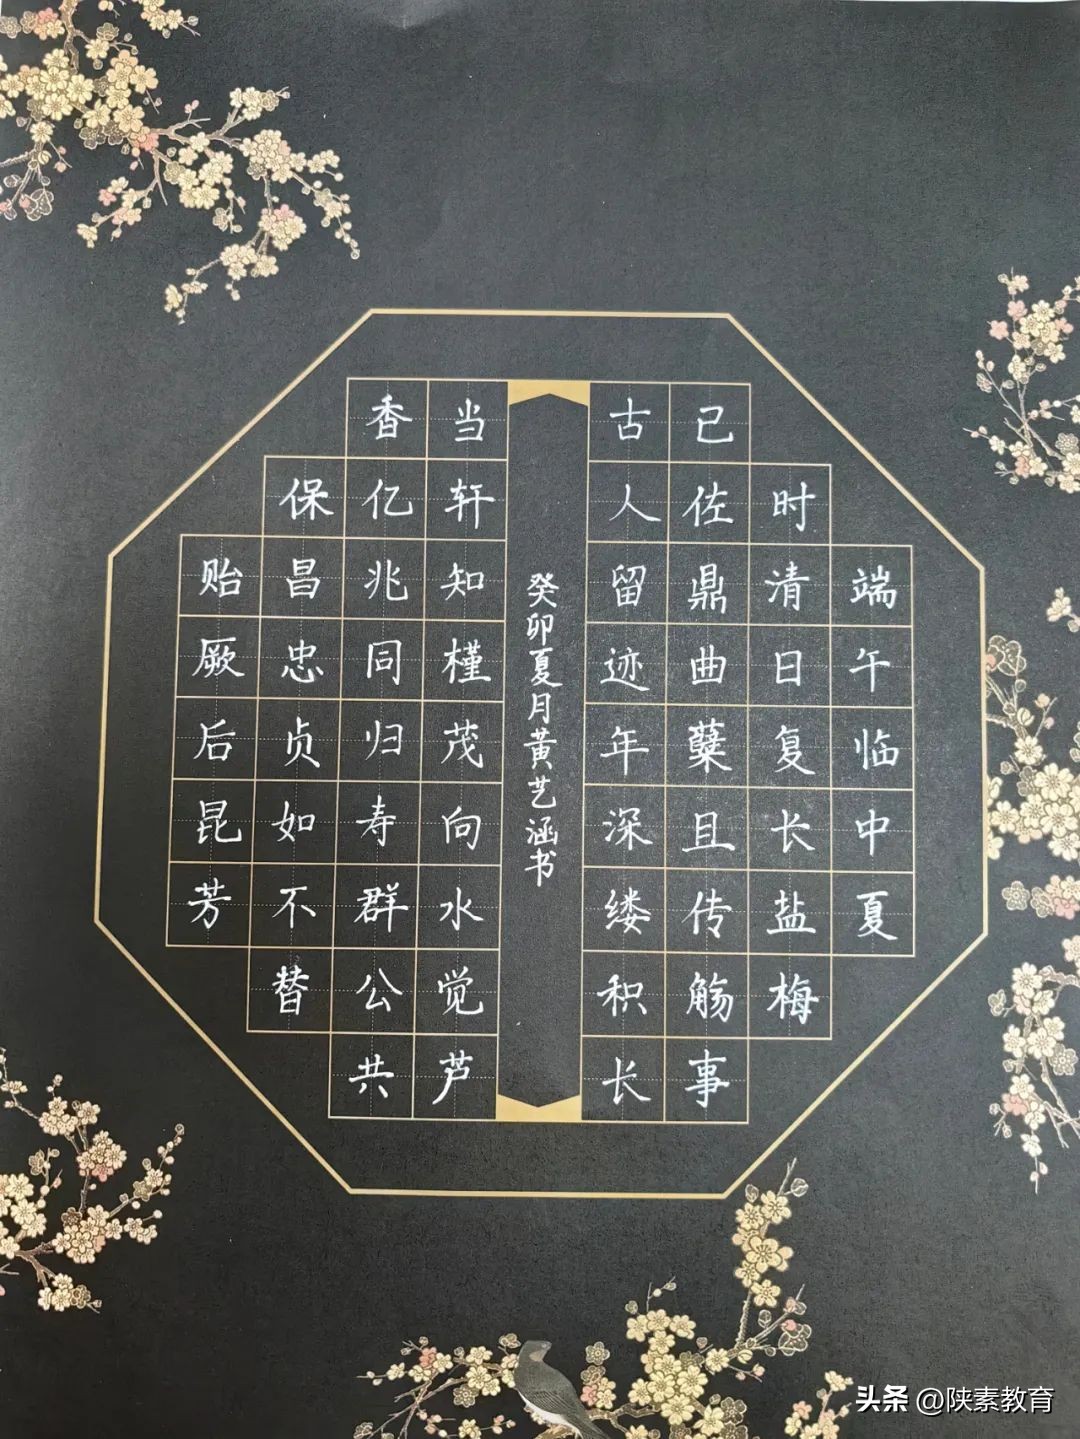 端午临中夏
时清日复长盐梅
已佐鼎曲糵且传觞事
古人留迹年深缕积长
当轩知槿茂向水觉芦
香亿兆同归寿群公共
保昌忠贞如不替
贻厥后昆芳
癸卯夏月黄艺涵书
头条@陕素教育